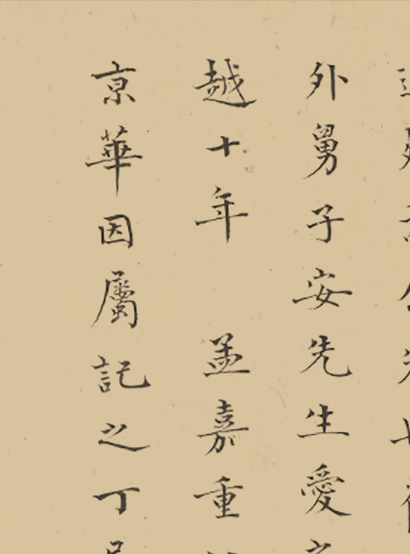 外舅子安先生愛
越十年 孟嘉重
京華因屬記之丁